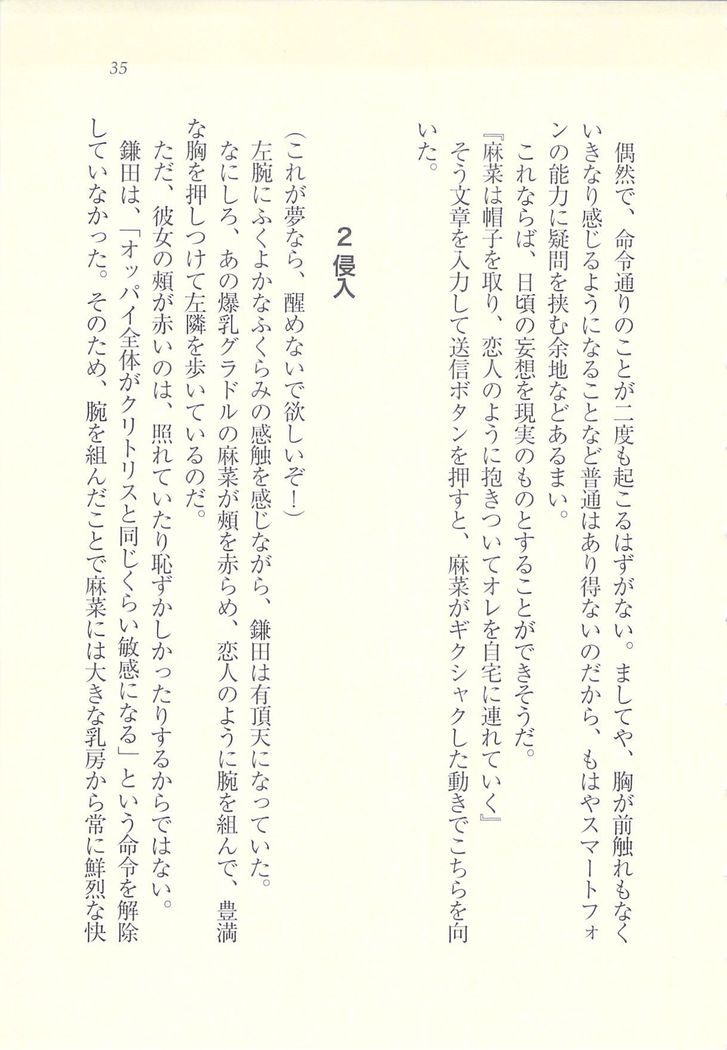 35
偶然で、命令通りのことが二度も起こるはずがない。ましてや、胸が前触れもなく
いきなり感じるようになることなど普通はあり得ないのだから、もはやスマートフォ
ンの能力に疑問を挟む余地などあるまい。
これならば、日頃の妄想を現実のものとすることができそうだ。
『麻菜は帽子を取り、恋人のように抱きついてオレを自宅に連れていく』
そう文章を入力して送信ボタンを押すと、麻菜がギクシャクした動きでこちらを向
いた。
2 侵入
(これが夢なら、醒めないで欲しいぞ！)
左腕にふくよかなふくらみの感触を感じながら、鎌田は有頂天になっていた。
なにしろ、あの爆乳グラドルの麻菜が頰を赤らめ、恋人のように腕を組んで、豊満
な胸を押しつけて左隣を歩いているのだ。
ただ、彼女の頰が赤いのは、照れていたり恥ずかしかったりするからではない。
鎌田は、「オッパイ全体がクリトリスと同じくらい敏感になる」という命令を解除
していなかった。そのため、腕を組んだことで麻菜には大きな乳房から常に鮮烈な快